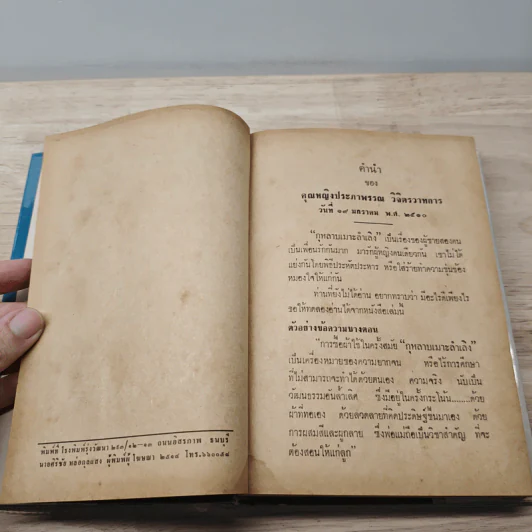 พิมพ์ที่ โรงพิมพ์รุ่งวัฒนา ๒๕๐/๑๒-๑๓ ถนนอิสรภาพ ธนบุรี
ผู้พิมพ์ผู้โฆษณา ๒๕๑๔ โทร.๖๖๐๑๕๘
คำนำ
ของ
คุณหญิงประภาพรรณ วิจิตรวาทการ
วันที่ ๑๙ มกราคม พ.ศ. ๒๕๑๐
"กุหลาบเมาะลำเลิง" เป็นเรื่องของผู้ชายสองคน
เป็นเพื่อนรักกันมาก มารักผู้หญิงคนเดียวกัน เขาไม่ได้
แย่งกันโดยพิธีประหัตประหาร หรือใส่ร้ายทำความขุ่นข้อง
หมองใจให้แก่กัน
ท่านที่ยังไม่ได้อ่าน อยากทราบว่า มีอะไรดีเพียงไร
ขอให้ทดลองอ่านได้จากหนังสือเล่มนี้
ตัวอย่างข้อความบางตอน
"การซื้อผ้าใช้ในครั้งสมัย "กุหลาบเมาะลำเลิง"
เป็นเครื่องหมายของความยากจน หรือไร้การศึกษา
ที่ไม่สามารถจะทำได้ด้วยตนเอง ความจริง นับเป็น
วัฒนธรรมอันล้ำเลิศ ซึ่งมีอยู่ในครั้งกระโน้น........ด้วย
ผ้าที่ทอเอง ด้วยลวดลายที่คิดประดิษฐ์ขึ้นมาเอง ด้วย
การผสมสีและผูกลาย ซึ่งพ่อแม่ถือเป็นวิชาสำคัญ ที่จะ
ต้องสอนให้แก่ลูก"